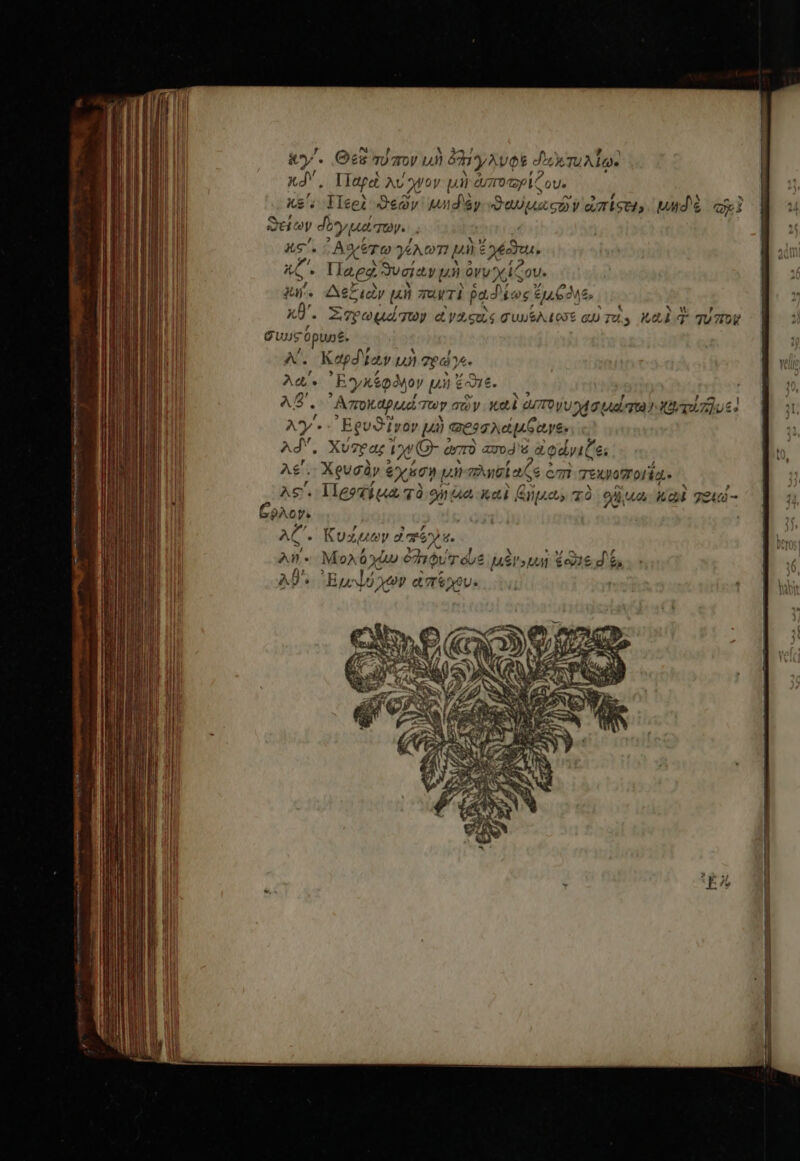 κγʹ. Θεοῦ τύπον μὴ ἐπίγλυφε δακτυλίῳ.
κδʹ. Παρὰ λύχνον μὴ
κεʹ. Περὶ θεῶν μηδὲν θαυμαστῶν ἀπίστει, μηδὲ περὶ
θείων δογμάτων.
κϛʹ. Ἀσχέτῳ γέλωτι μὴ ἔχεσθαι.
κζʹ. Παρὰ θυσίαν μὴ ὀνυχίζου.
κηʹ. Δεξιὰν μὴ παντὶ ῥαδίως ἔμβαλε.
κθʹ. Στρωμάτων ἀναστὰς συνέλισσε αὐτὰ, καὶ τὸν τύπον
συνστόρνυε.
λʹ. Καρδίαν μὴ τρῶγε.
λαʹ. Ἐγκέφαλον μὴ ἔσθιε.
λβʹ. Ἀποκαρμάτων σῶν καὶ ἀπονυχισμάτων κατάπτυε.
λγʹ. Ἐρυθῖνον μὴ προσλάμβανε.
λδʹ. Χύτρας ἴχνος ἀπὸ σποδοῦ ἀφάνιζε.
λεʹ. Χρυσὸν ἐχούσῃ μὴ πλησίαζε ἐπὶ τεκνοποιίᾳ.
λϛʹ. Προτίμα τὸ σχῆμα καὶ βῆμα, τὸ σχῆμα καὶ τριώ-
βολον.
λζʹ. Κυάμων ἀπέχου.
ληʹ. Μολόχην ἐπιφύτευε μὲν, μὴ ἔσθιε δέ.
λθʹ. Ἐμψύχων ἀπέχου.